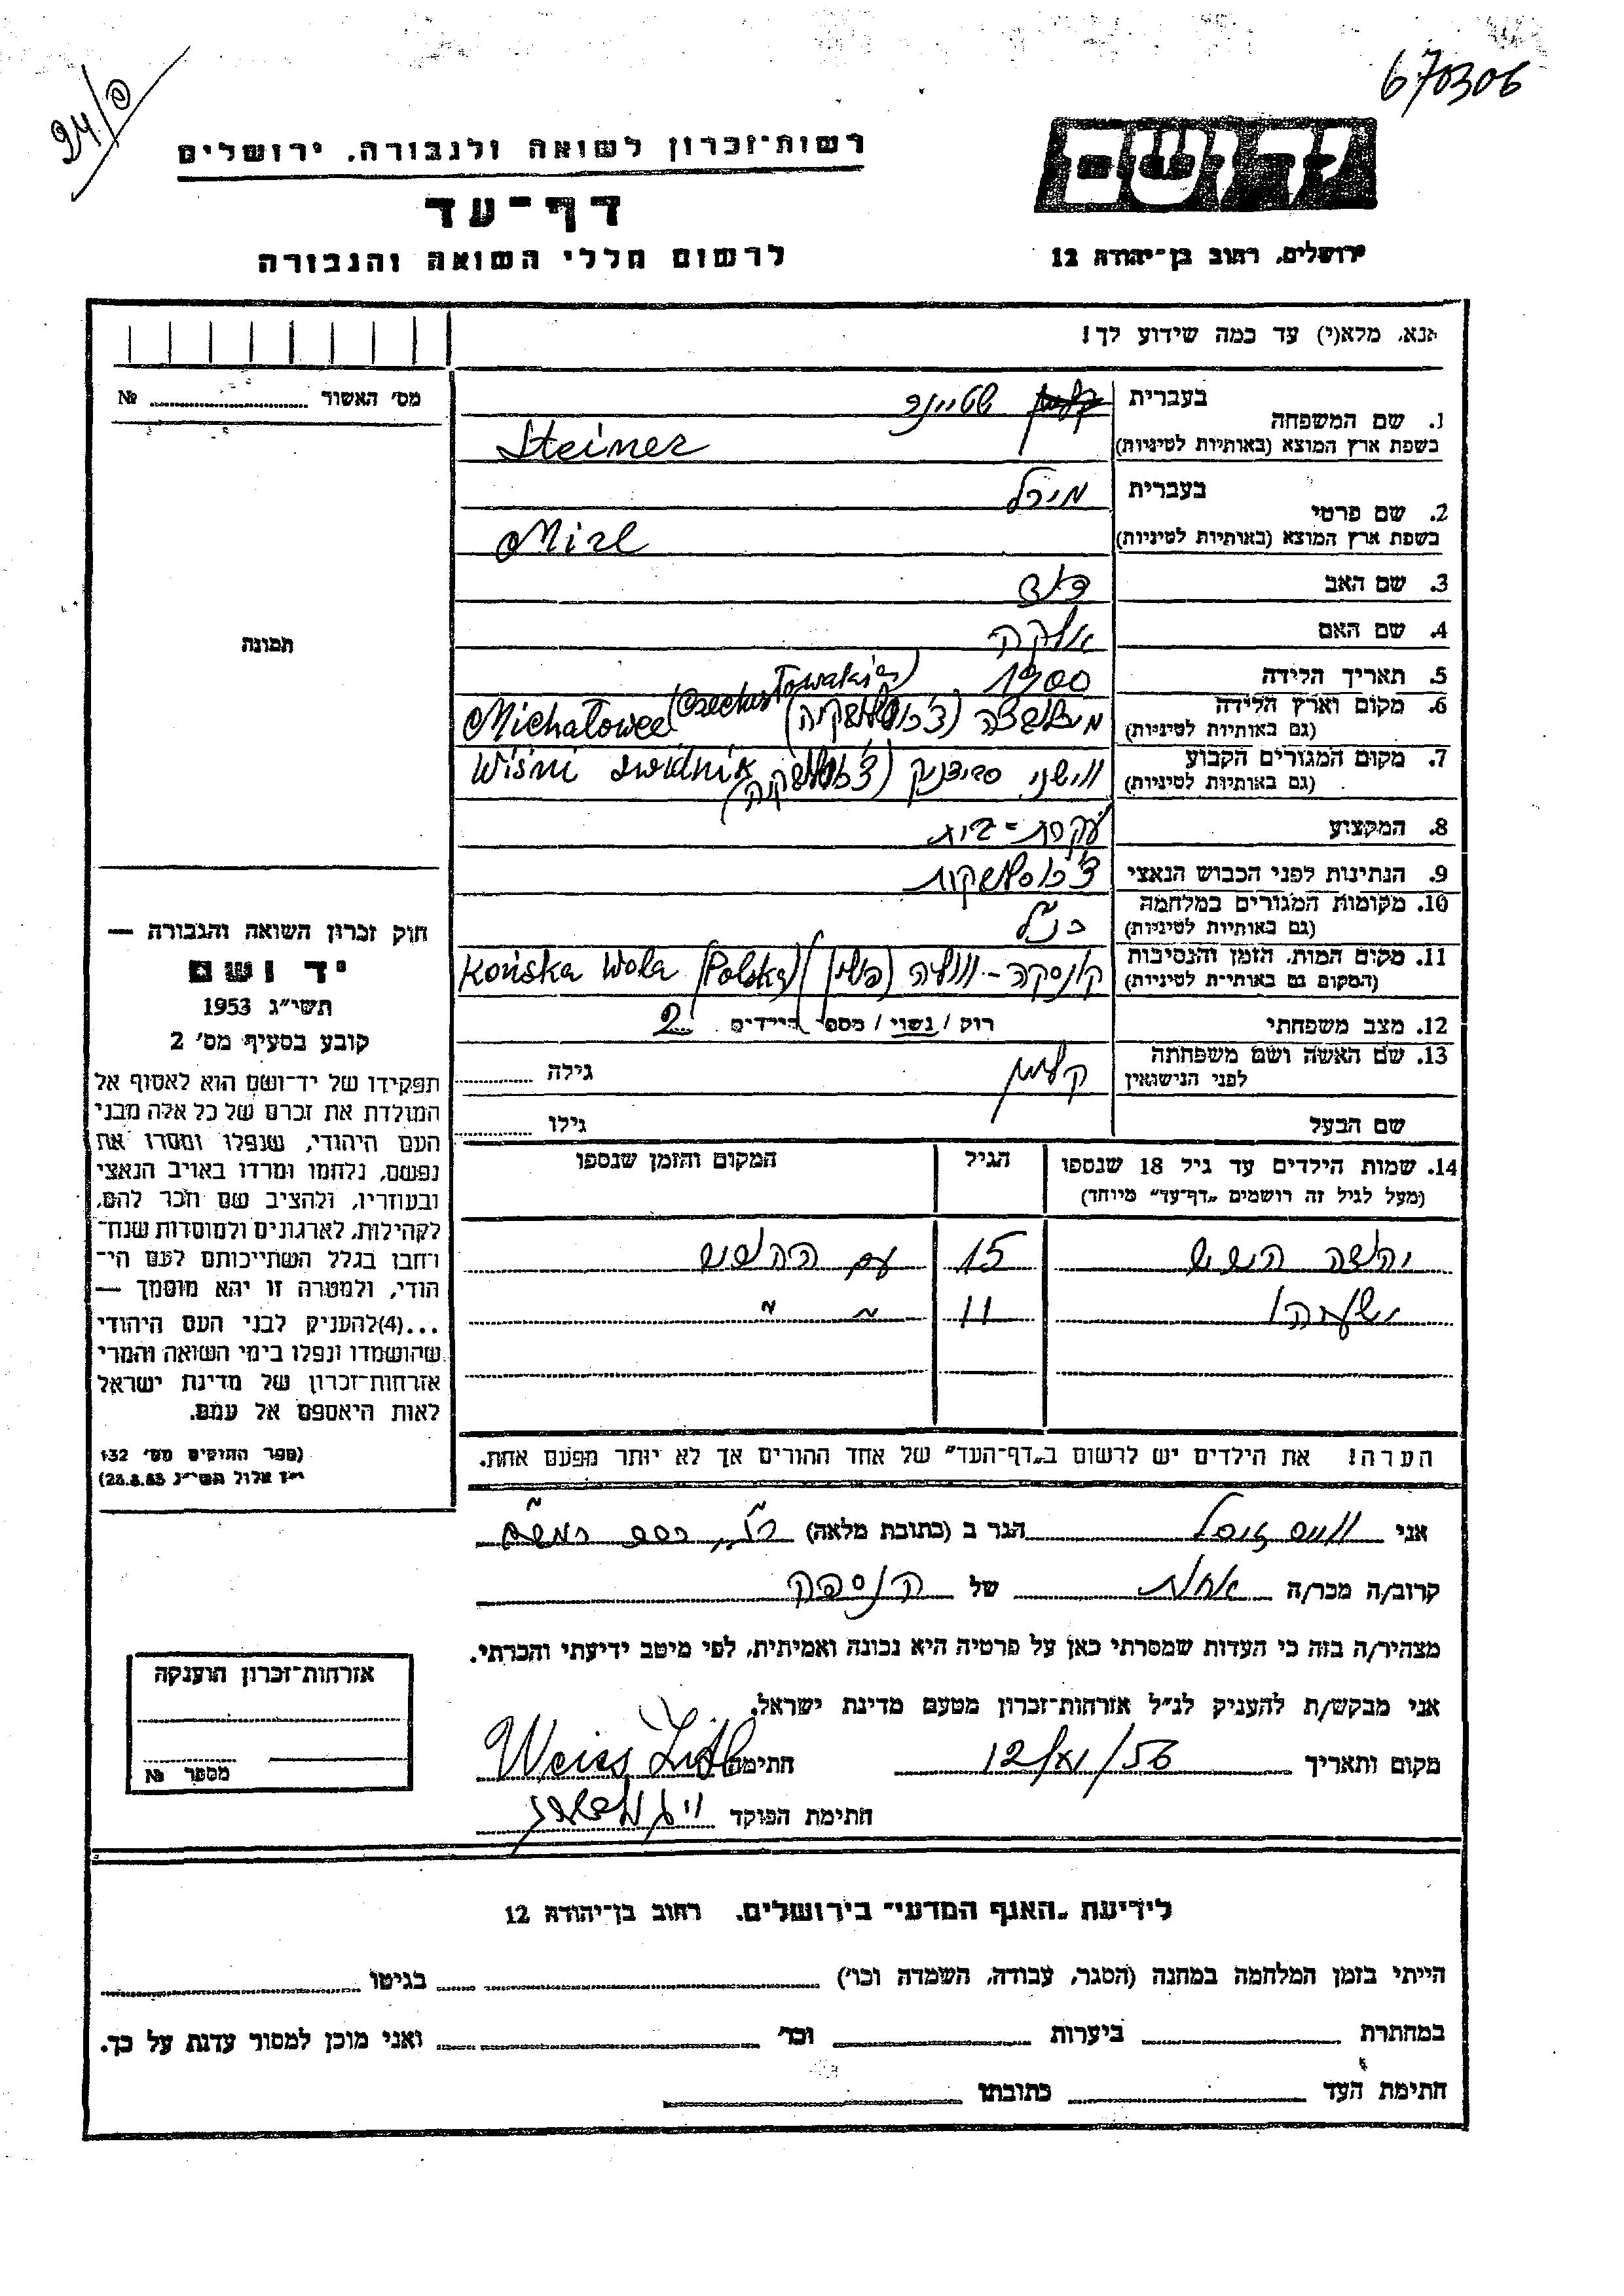 670306
94/
רשות־זכרון לשואה ולגבורה. ירושלים
דף־עד
לרשום חללי השואה והגבורה
ירושלים. רחוב בן־יהודה 12
אנא. מלא(י) עד כמה שידוע לך!
מס׳ האשור № 
1. שם המשפחה
בעברית שטיינר
בשפת ארץ המוצא (באותיות לטיניות) Steiner
2. שם פרטי
בעברית מירל
בשפת ארץ המוצא (באותיות לטיניות) Mirl
3. שם האב
4. שם האם
5. תאריך הלידה 1900
6. מקום וארץ הלידה (צ׳כוסלובקיה) Michałowce (Czechosłowakia)
(גם באותיות לטיניות)
7. מקום המגורים הקבוע ווישני סבידניק (צ׳כוסלובקיה) Wiśni Świdnik
(גם באותיות לטיניות)
8. המקצוע עקרת־בית
9. הנתינות לפני הכבוש הנאצי צ׳כוסלובקית
10. מקומות המגורים במלחמה כנ״ל
(גם באותיות לטיניות)
11. מקום המות. הזמן והנסיבות קונסקה־וולה (פולין) Końska Wola (Polska)
(המקום גם באותיות לטיניות)
12. מצב משפחתי רוק / נשוי / מספר הילדים 2
13. שם האשה ושם משפחתה
לפני הנישואין קלמן גילה
שם הבעל גילו
14. שמות הילדים עד גיל 18 שנספו הגיל המקום והזמן שנספו
(מעל לגיל זה רושמים „דף־עד״ מיוחד)
15 עם
11 ״ ״
הערה! את הילדים יש לרשום ב„דף־העד״ של אחד ההורים אך לא יותר מפעם אחת.
תמונה
חוק זכרון השואה והגבורה —
יד ושם
תשי״ג 1953
קובע בסעיף מס׳ 2
תפקידו של יד־ושם הוא לאסוף אל
המולדת את זכרם של כל אלה מבני
העם היהודי, שנפלו ומסרו את
נפשם, נלחמו ומרדו באויב הנאצי
ובעוזריו, ולהציב שם וזכר להם,
לקהילות, לארגונים ולמוסדות שנח־
רבו בגלל השתייכותם לעם הי־
הודי, ולמטרה זו יהא מוסמך —
...(4)להעניק לבני העם היהודי
שהושמדו ונפלו בימי השואה והמרי
אזרחות־זכרון של מדינת ישראל
לאות היאספם אל עמם.
(ספר החוקים מס׳ 132
י״ז אלול תשי״ג 28.8.53)
אני הגר ב (כתובת מלאה)
קרוב/ה מכר/ה של
מצהיר/ה בזה כי העדות שמסרתי כאן על פרטיה היא נכונה ואמיתית, לפי מיטב ידיעתי והכרתי.
אני מבקש/ת להעניק לנ״ל אזרחות־זכרון מטעם מדינת ישראל.
מקום ותאריך 12/XI/56 חתימה Weiss
חתימת הפוקד
אזרחות־זכרון הוענקה
מספר №
לידיעת „האגף המדעי״ בירושלים. רחוב בן־יהודה 12
הייתי בזמן המלחמה במחנה (הסגר, עבודה, השמדה וכו׳) בגיטו
במחתרת ביערות וכו׳ ואני מוכן למסור עדות על כך.
חתימת העד כתובתו